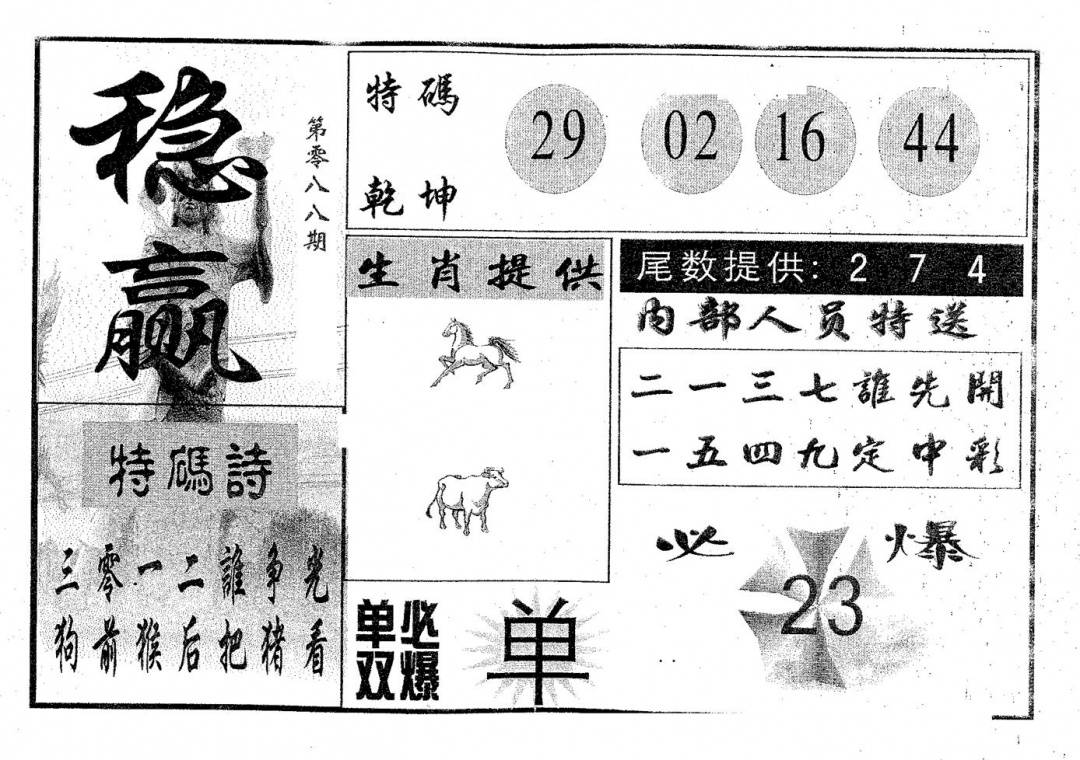 稳赢
第零八八期
特碼
乾坤
29 02 16 44
特碼詩
三零一二誰争光
狗前猴后把猪看
生肖提供
单双
必爆
单
尾数提供：2 7 4
内部人员特送
二一三七誰先開
一五四九定中彩
必爆
23